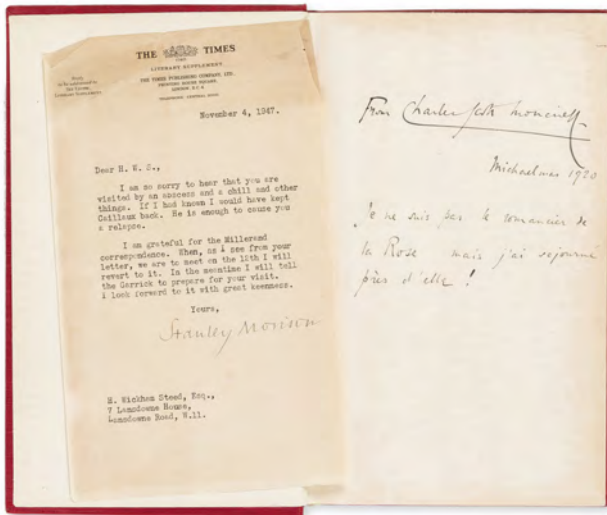 THE TIMES
LITERARY SUPPLEMENT
THE TIMES PUBLISHING COMPANY, LTD.
PRINTING HOUSE SQUARE,
LONDON, E.C.4
TELEPHONE: CENTRAL
November 4, 1947.
Dear H. W. S.,
I am so sorry to hear that you are
visited by an abscess and a chill and other
things. If I had known I would have kept
Caillaux back. He is enough to cause you
a relapse.
I am grateful for the Millerand
correspondence. When, as I see from your
letter, we are to meet on the 12th I will
revert to it. In the meantime I will tell
the Garrick to prepare for your visit.
I look forward to it with great keenness.
Yours,
Stanley Morison
H. Wickham Steed, Esq.,
7 Lansdowne House,
Lansdowne Road, W.11.
From Charles Scott Moncrieff
Michaelmas 1920
Je ne suis pas le romancier de
la Rose mais j'ai séjourné
près d'elle !